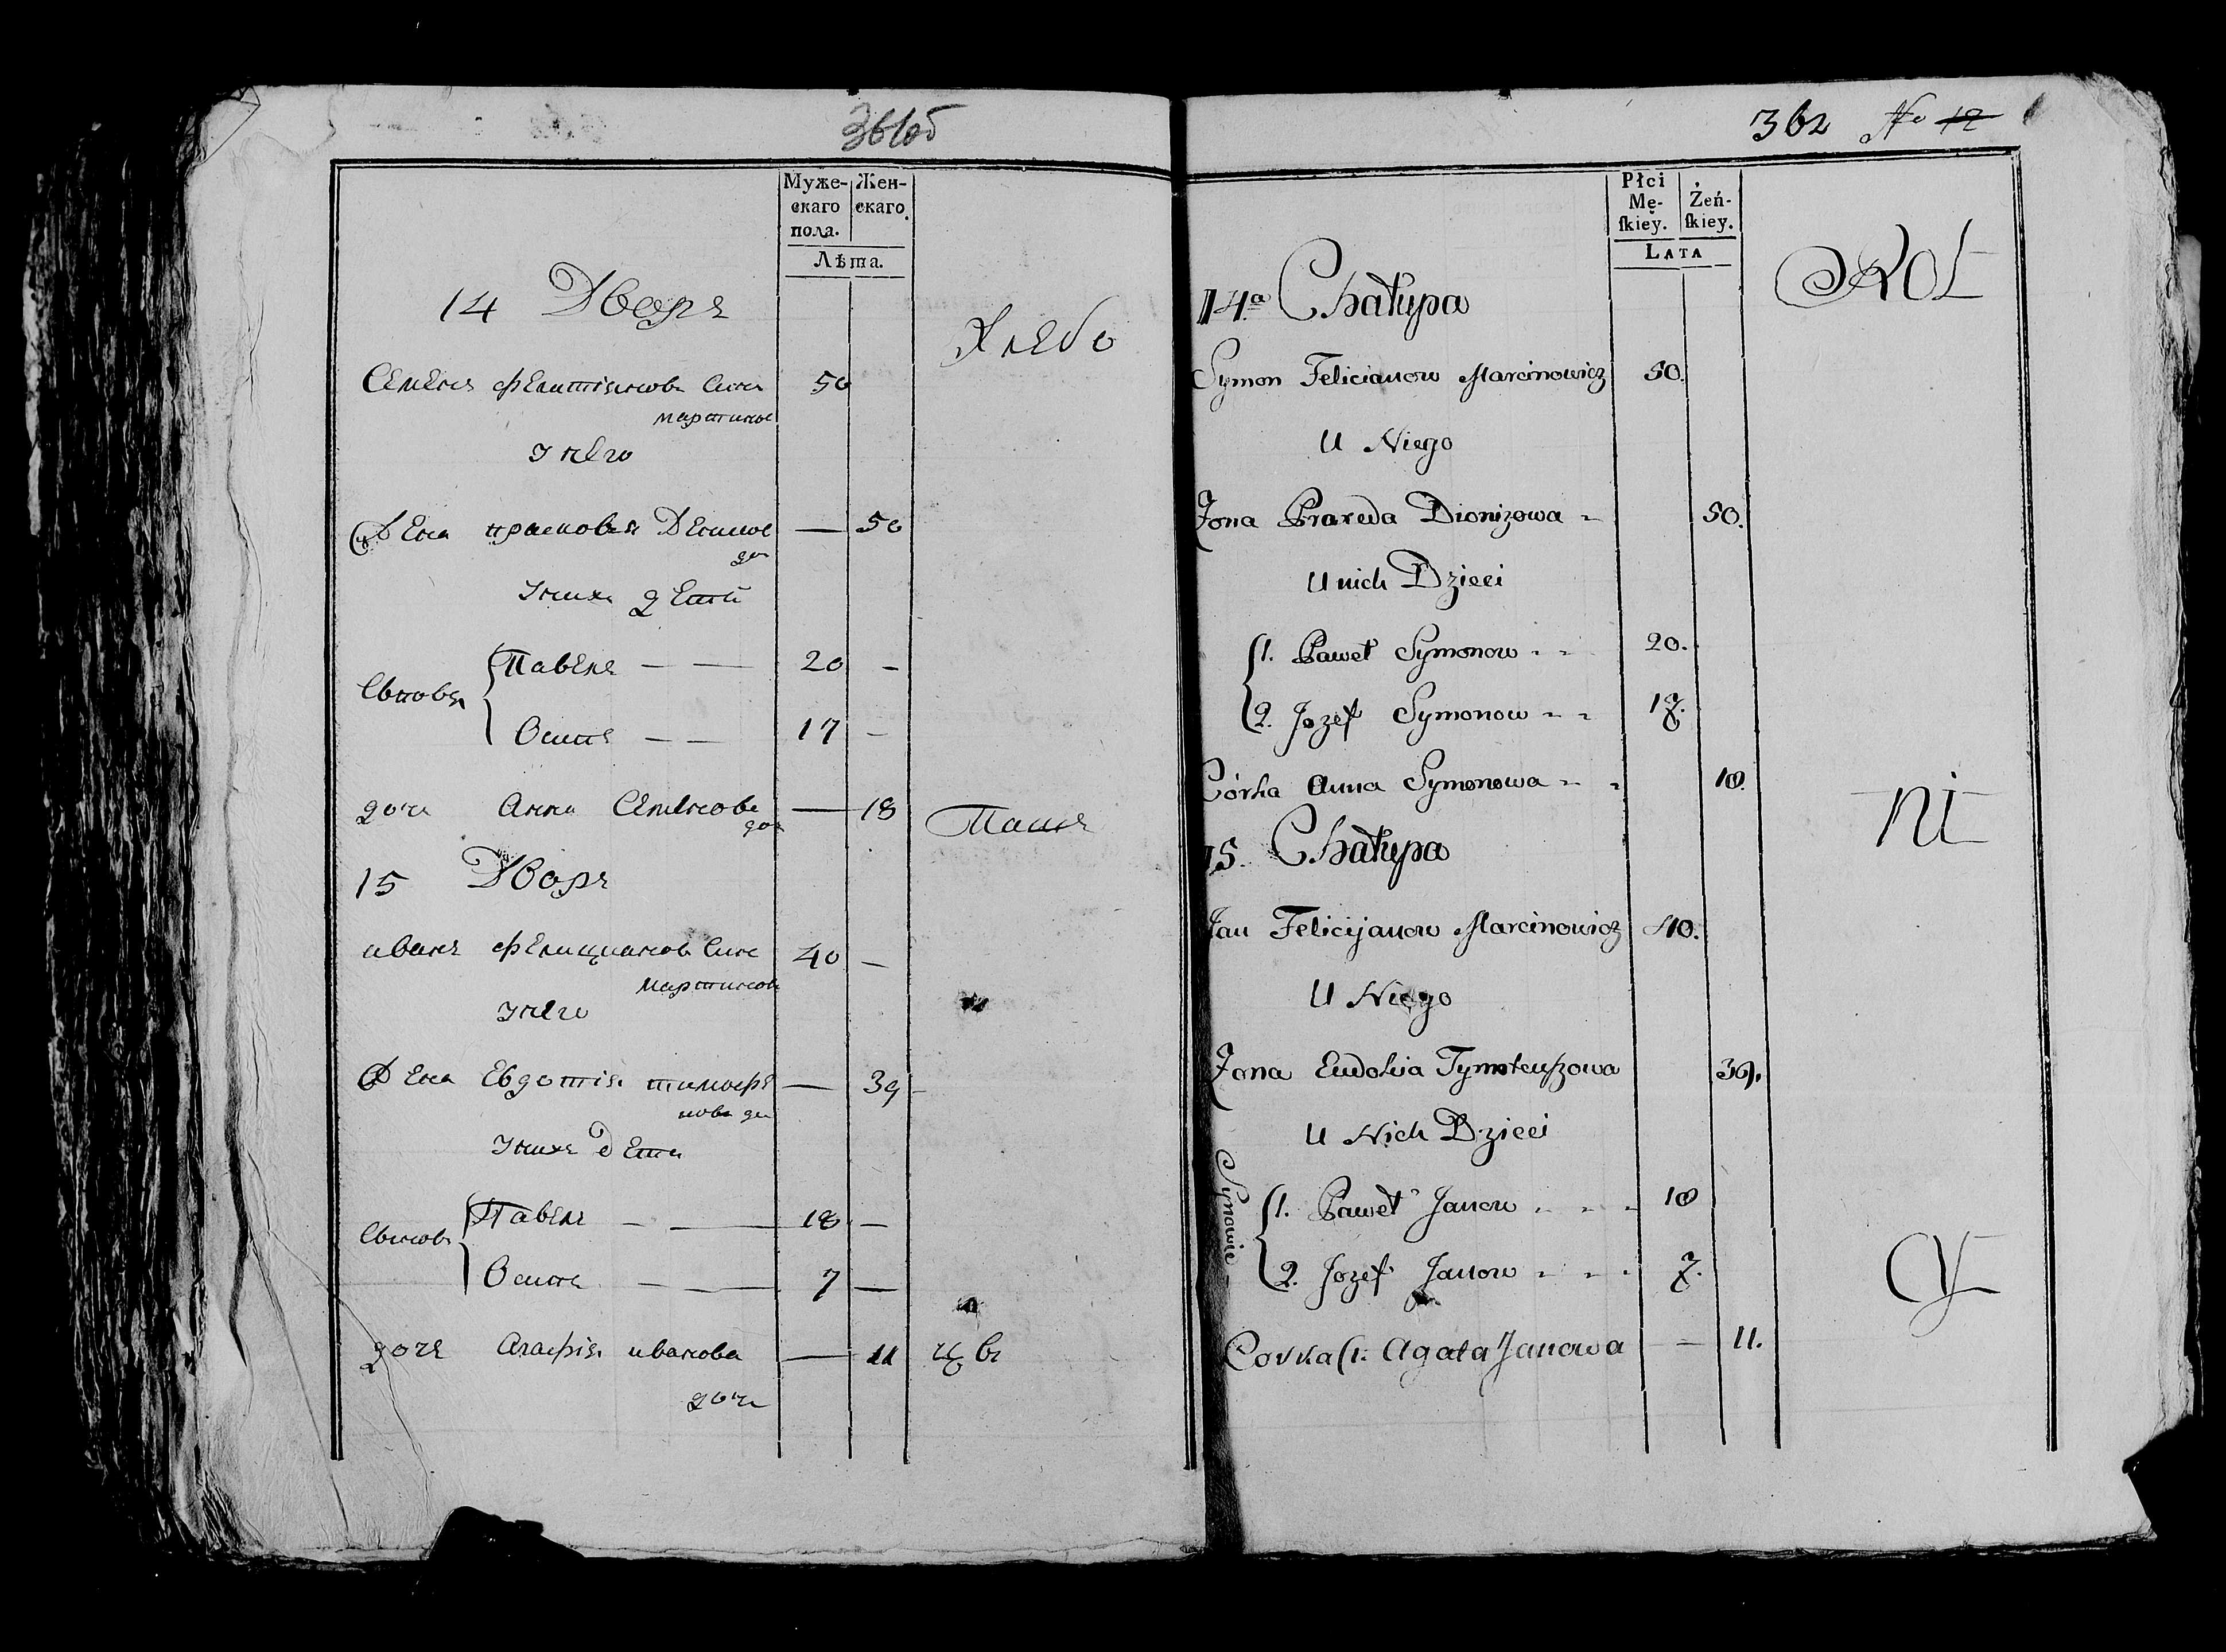 361об
Муже- Жен-
скаго скаго.
пола.
Лѣта.
14 Дворъ
Хлебо
Семенъ Фелитіяновъ Синъ 50
мартинов
У него
Жена прасковья Денисов — 50
до
У нихъ дети
Синовя { Павелъ — — 20 —
Осипъ — — 17 —
дочь Анна Семенова — 18
до
Пашн
15 Дворъ
иванъ Фелицианов Синъ 40 —
Мартинов
У него
Жена Евдотія тимофе — 39 —
нова до
У нихъ дети
Синов { Павелъ — — 18 —
Осипъ — — 7 —
дочь Агафія иванова — 11 цы
дочь
362 No 12
Płci Żeń-
Mę- ſkiey.
ſkiey.
LATA
ROL
14.a Chałupa
Symon Felicianow Marcinowicz 50.
U Niego
Żona Praxeda Dionizowa - 50.
U nich Dzieci
{ 1. Paweł Symonow - - 20.
2. Jozef Symonow - - 17.
Córka Anna Symonowa - - 18.
NI
15. Chałupa
Jan Felicyjanow Marcinowicz 40.
U Niego
Żona Eudokia Tymteuſzowa 39.
U Nich Dzieci
Synowie { 1. Paweł Janow - - - 18
2. Jozef Janow - - - 7.
CY
Corka { 1. Agata Janowa — 11.